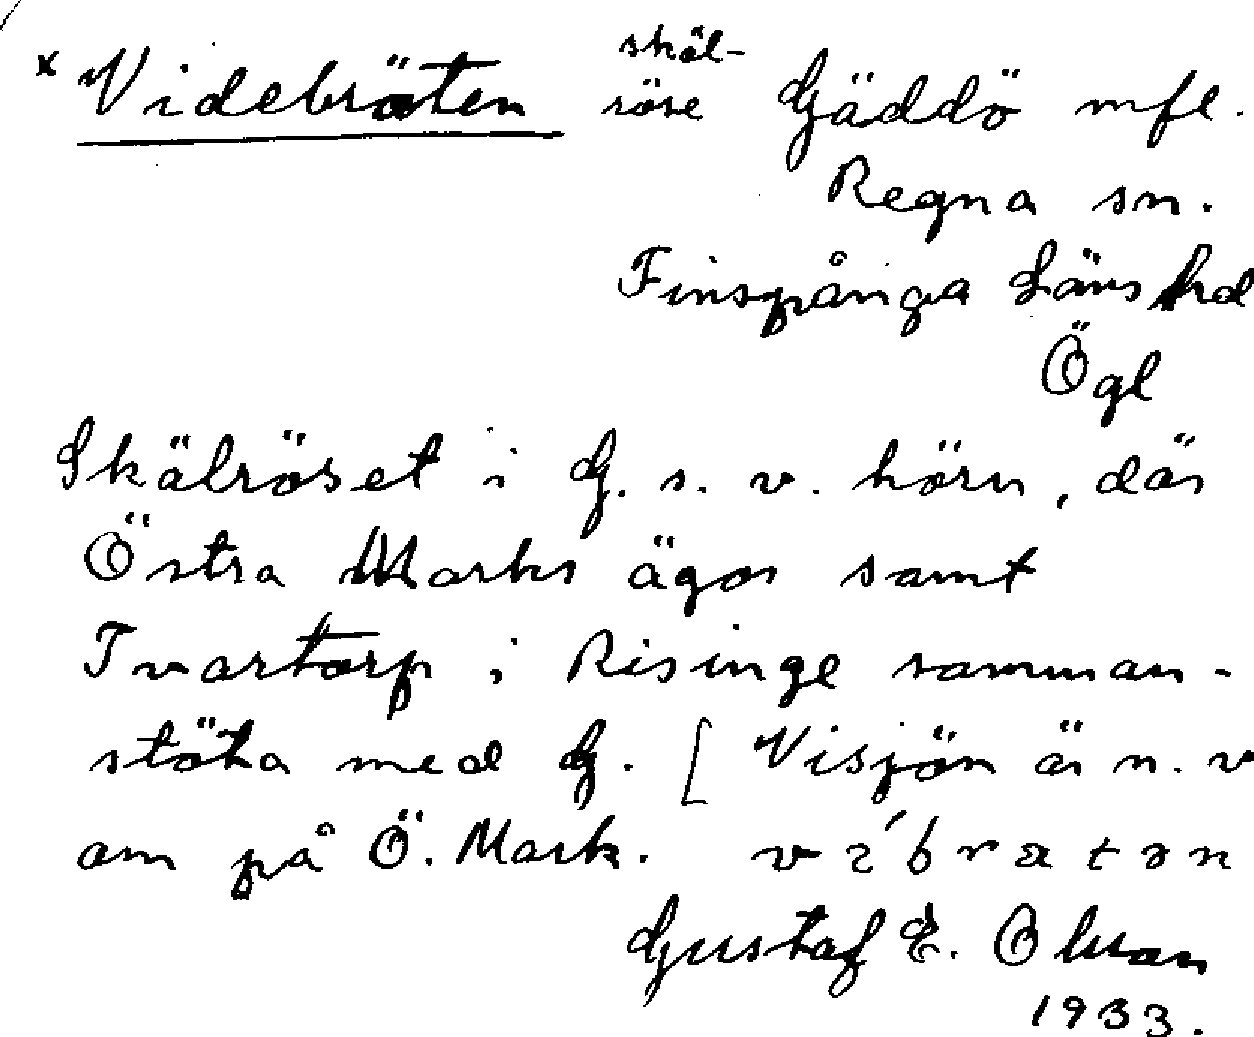 x Videbråten skäl-
röse Gäddö mfl.
Regna sn.
Finspånga Läns hd
Ögl
Skälröset i G. s. v. hörn, där
Östra Marks ägor samt
Tvartorp i Risinge samman-
stöta med G. [ Visjön är n. v
om på Ö. Mark.
Gustaf E. Olsson
1933.